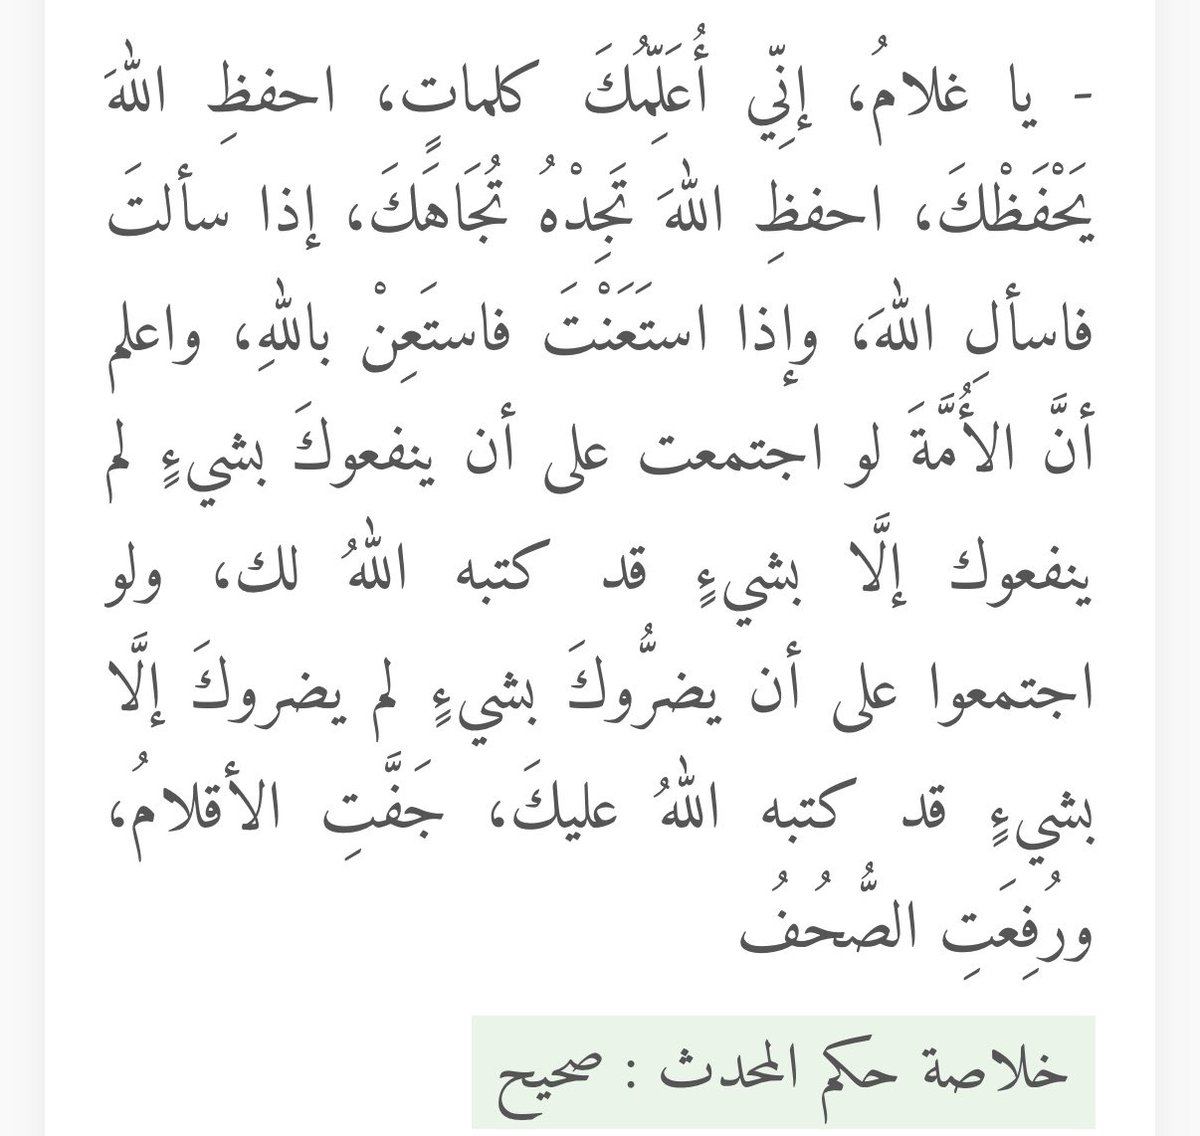 - يا غلامُ، إنِّي أُعَلِّمُكَ كلماتٍ، احفظِ اللهَ
يَحْفَظْكَ، احفظِ اللهَ تَجِدْهُ تُجَاهَكَ، إذا سألتَ
فاسألِ اللهَ، وإذا استَعَنْتَ فاستَعِنْ باللهِ، واعلم
أنَّ الأُمَّةَ لو اجتمعت على أن ينفعوكَ بشيءٍ لم
ينفعوك إلَّا بشيءٍ قد كتبه اللهُ لك، ولو
اجتمعوا على أن يضرُّوكَ بشيءٍ لم يضروكَ إلَّا
بشيءٍ قد كتبه اللهُ عليكَ، جَفَّتِ الأقلامُ،
ورُفِعَتِ الصُّحُفُ
خلاصة حكم المحدث : صحيح